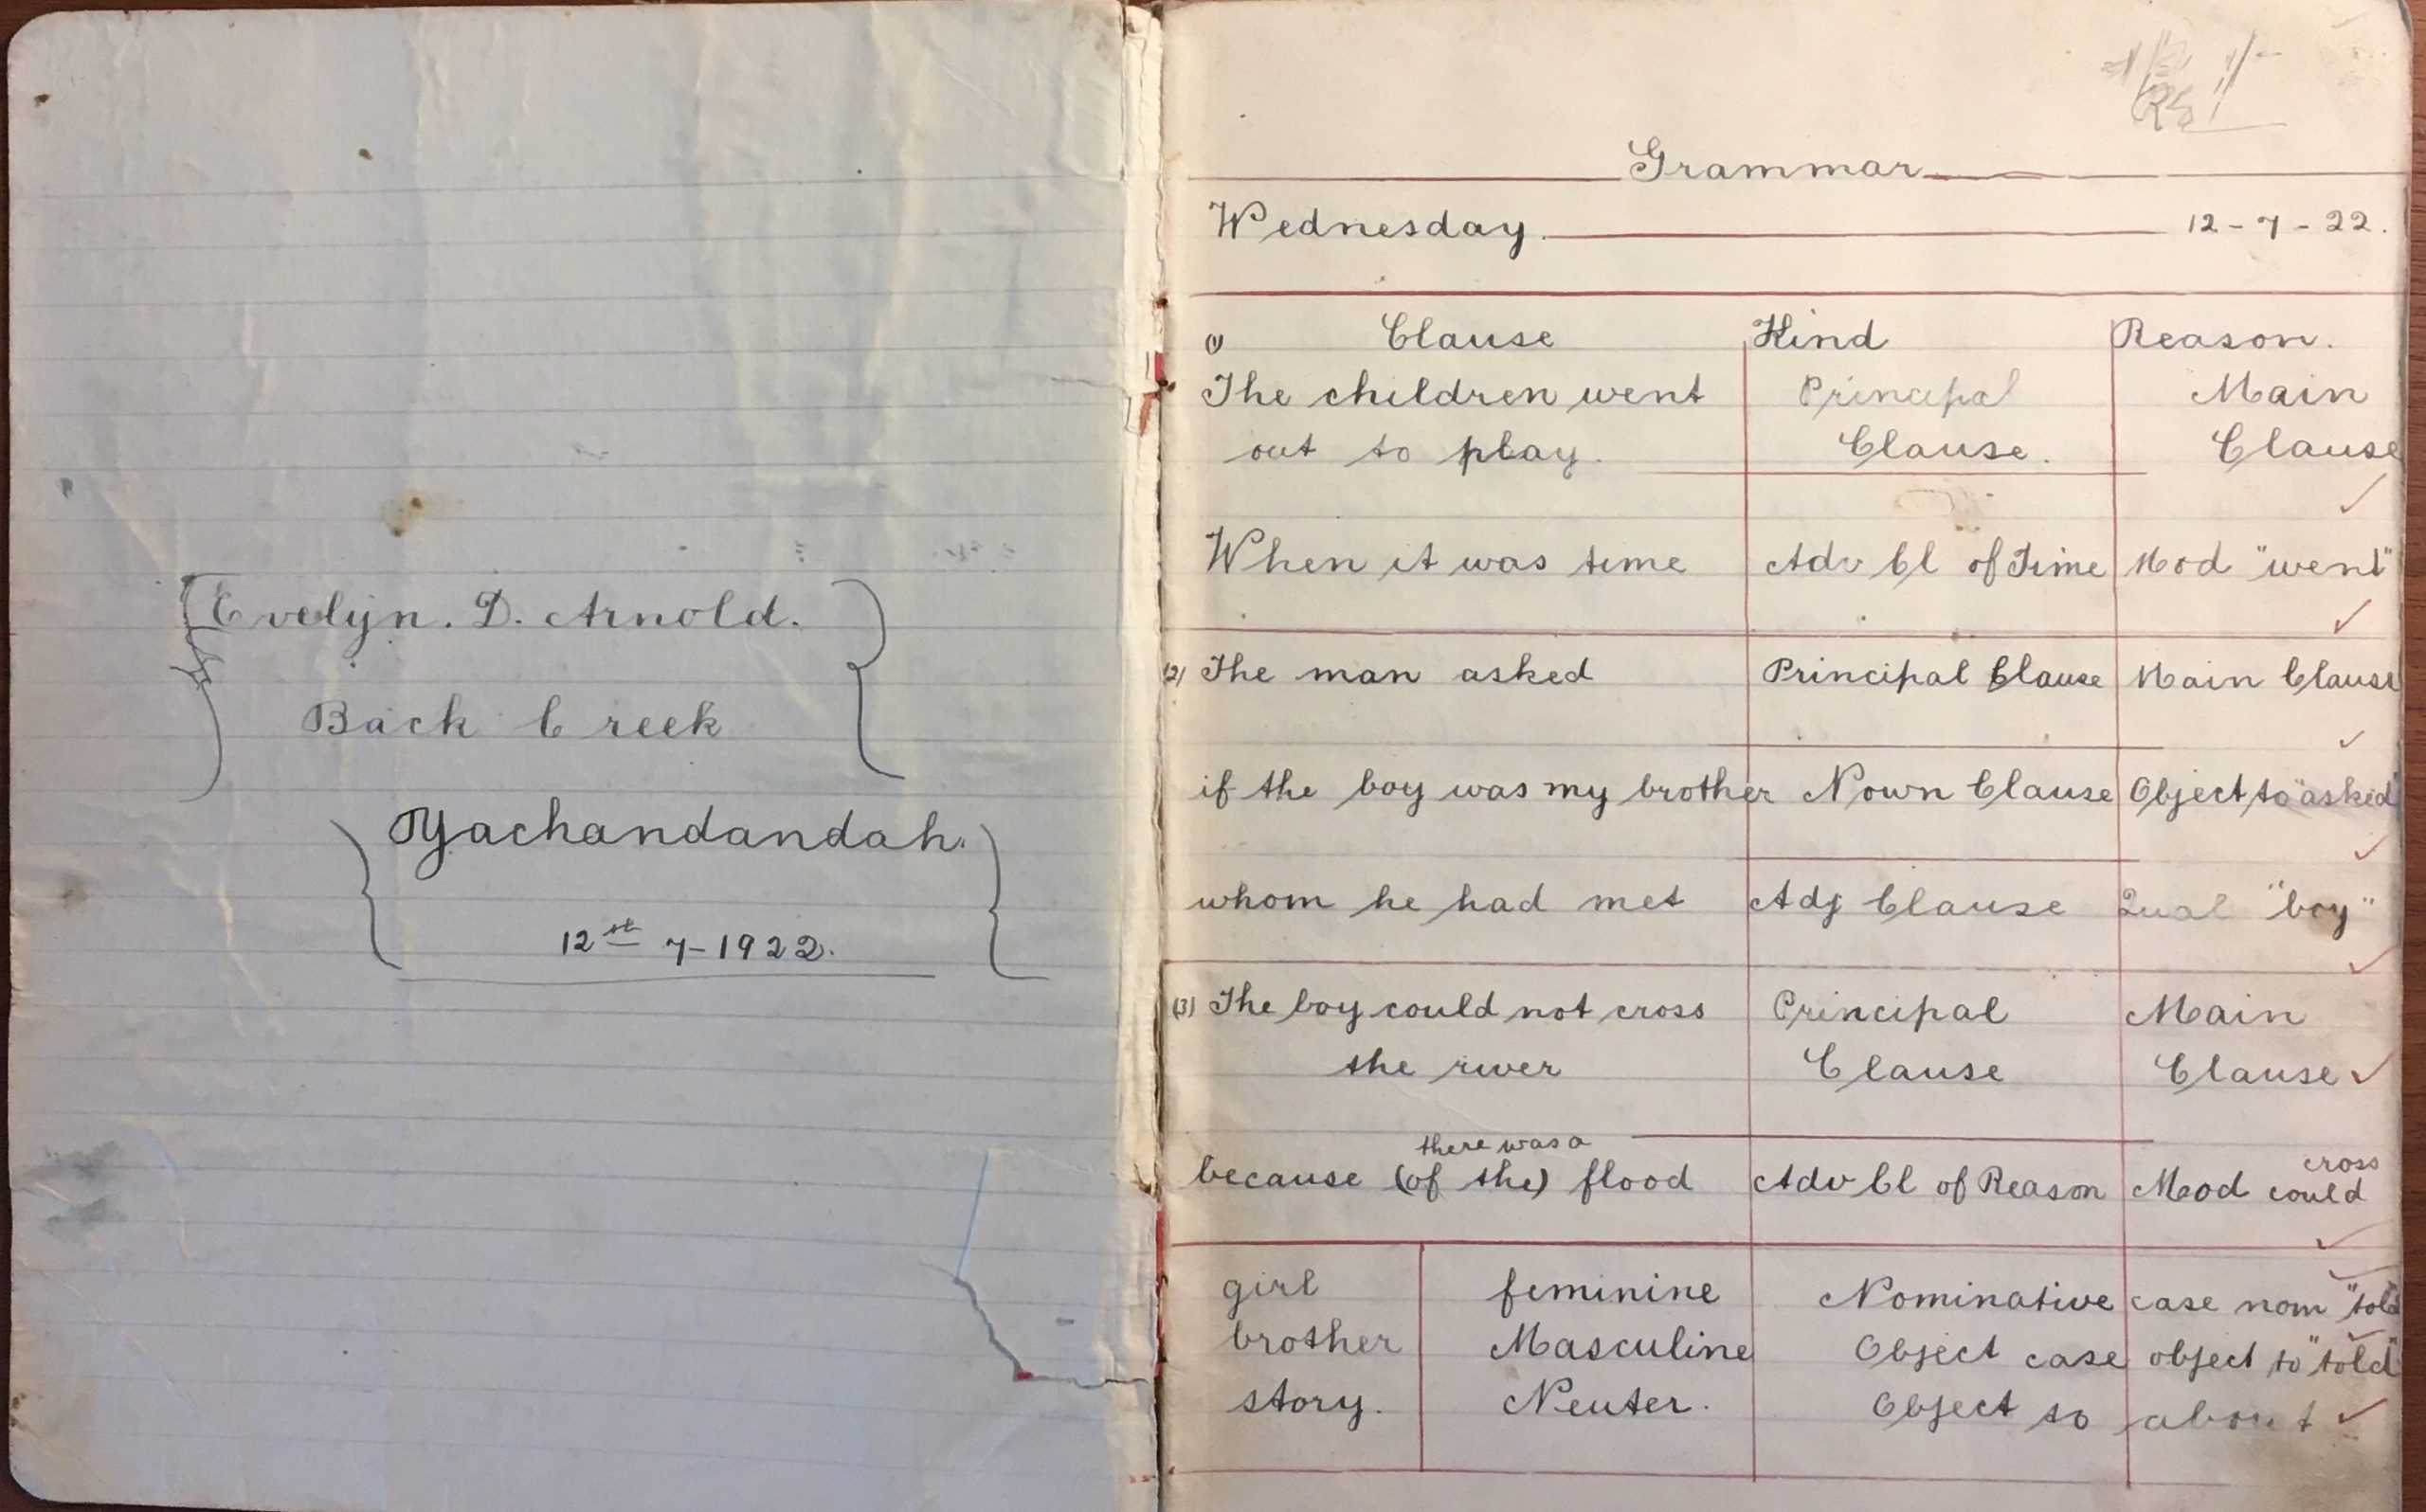 Evelyn. D. Arnold.
Back Creek
Yachandandah.
12st 7-1922.
Grammar
Wednesday. 12-7-22.
(1) Clause Kind Reason.
The children went Principal Main
out to play. Clause. Clause
When it was time Adv Cl of Time Mod "went"
(2) The man asked Principal Clause Main Clause
if the boy was my brother Nown Clause Object to "asked"
whom he had met Adj Clause Qual "boy"
(3) The boy could not cross Principal Main
the river Clause Clause
there was a cross
because (of the) flood Adv Cl of Reason Mod could
girl feminine Nominative case nom "told
brother Masculine Object case object to "told"
story. Neuter. Object to about